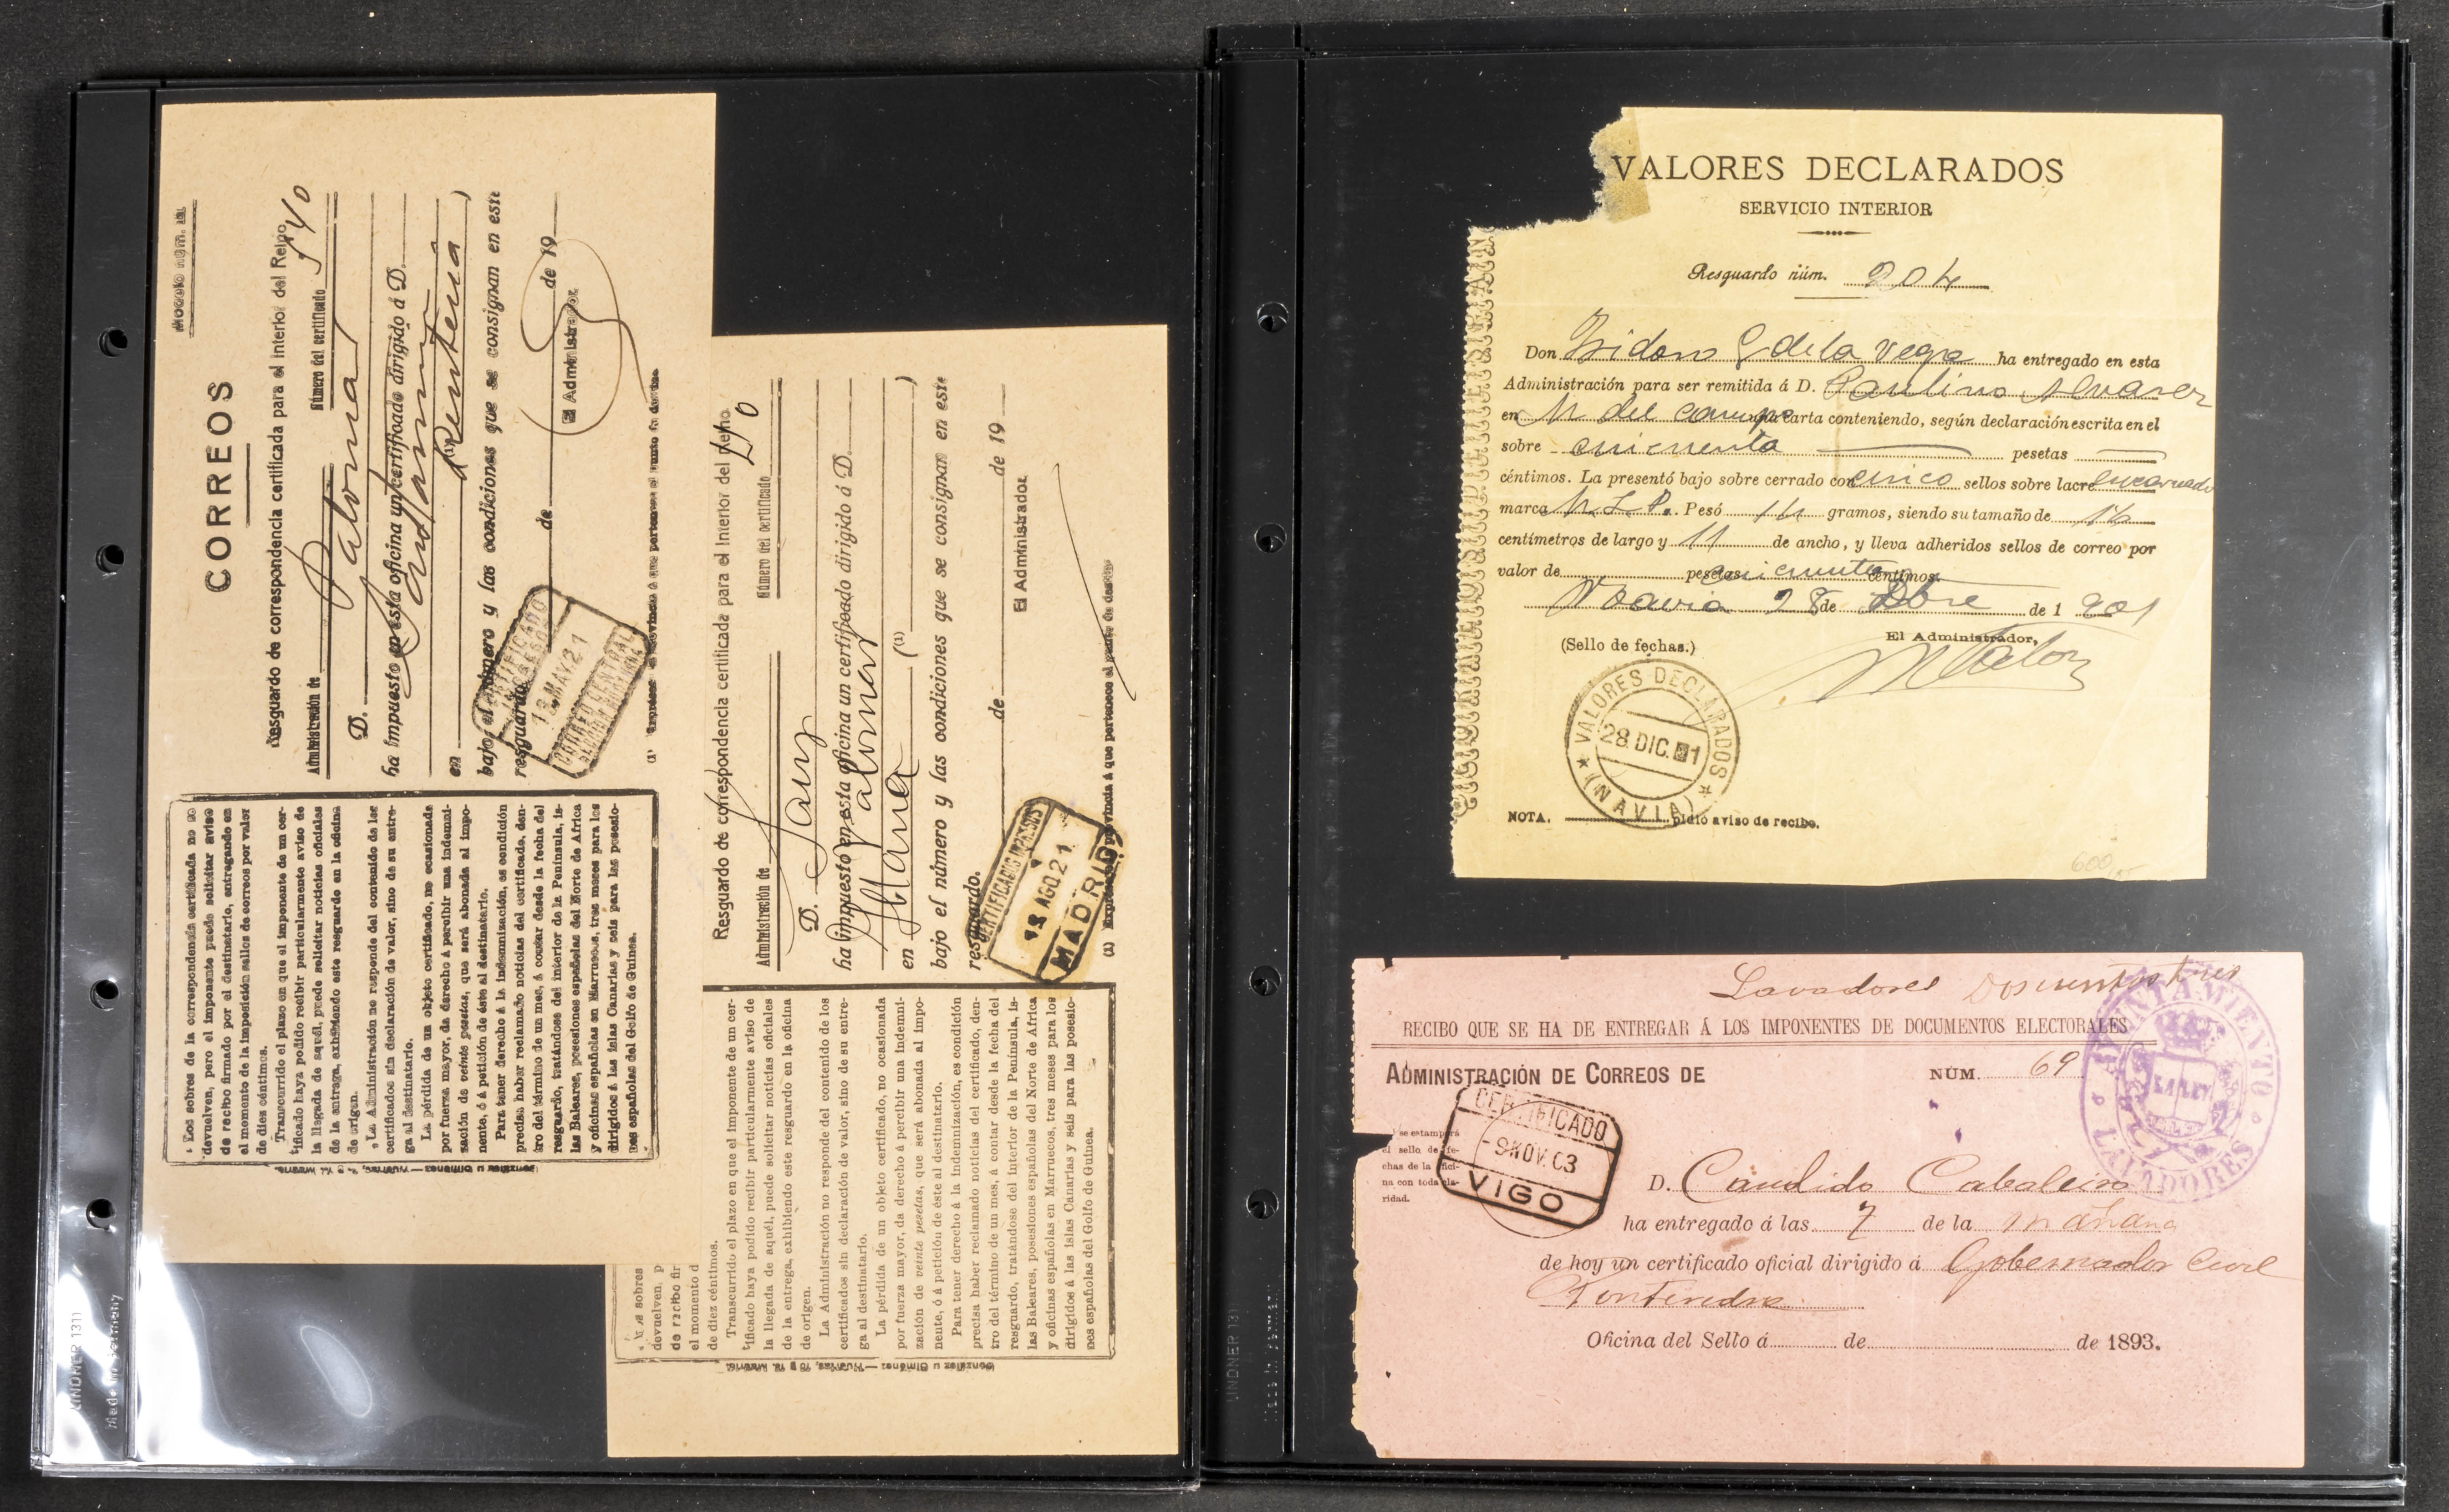 MODELO NÚM. 13.
CORREOS
Resguardo de correspondencia certificada para el interior del Reino.
Administración de Número del certificado 540
D. Palomar
ha impuesto en esta oficina un certificado dirigido á D.
en (1) )
bajo el número y las condiciones que se consignan en este
resguardo.
de de 19
El Administrador.
CERTIFICADO
IMPRESOS
13 MAY. 21
CORREO CENTRAL
(1) Exprésese la provincia á que pertenece el punto de destino.
Los sobres de la correspondencia certificada no se
devuelven, pero el imponente puede solicitar aviso
de recibo firmado por el destinatario, entregando en
el momento de la imposición sellos de correos por valor
de diez céntimos.
Transcurrido el plazo en que el imponente de un cer-
tificado haya podido recibir particularmente aviso de
la llegada de aquél, puede solicitar noticias oficiales
de la entrega, exhibiendo este resguardo en la oficina
de origen.
La Administración no responde del contenido de los
certificados sin declaración de valor, sino de su entre-
ga al destinatario.
La pérdida de un objeto certificado, no ocasionada
por fuerza mayor, da derecho á percibir una indemni-
zación de veinte pesetas, que será abonada al impo-
nente, ó á petición de éste al destinatario.
Para tener derecho á la indemnización, es condición
precisa haber reclamado noticias del certificado, den-
tro del término de un mes, á contar desde la fecha del
resguardo, tratándose del interior de la Península, is-
las Baleares, posesiones españolas del Norte de Africa
y oficinas españolas en Marruecos, tres meses para los
dirigidos á las islas Canarias y seis para las posesio-
nes españolas del Golfo de Guinea.
Resguardo de correspondencia certificada para el interior del Reino.
Administración de Número del certificado
D. Sanz
ha impuesto en esta oficina un certificado dirigido á D.
Palomar
en (1) )
bajo el número y las condiciones que se consignan en este
resguardo.
de de 19
El Administrador.
CERTIFICADO IMPRESOS
18 AGO 21
MADRID
(1) Exprésese la provincia á que pertenece el punto de destino.
sobres
devuelven, p
de recibo fir
el momento d
de diez céntimos.
Transcurrido el plazo en que el imponente de un cer-
tificado haya podido recibir particularmente aviso de
la llegada de aquél, puede solicitar noticias oficiales
de la entrega, exhibiendo este resguardo en la oficina
de origen.
La Administración no responde del contenido de los
certificados sin declaración de valor, sino de su entre-
ga al destinatario.
La pérdida de un objeto certificado, no ocasionada
por fuerza mayor, da derecho á percibir una indemni-
zación de veinte pesetas, que será abonada al impo-
nente, ó á petición de éste al destinatario.
Para tener derecho á la indemnización, es condición
precisa haber reclamado noticias del certificado, den-
tro del término de un mes, á contar desde la fecha del
resguardo, tratándose del interior de la Península, is-
las Baleares, posesiones españolas del Norte de Africa
y oficinas españolas en Marruecos, tres meses para los
dirigidos á las islas Canarias y seis para las posesio-
nes españolas del Golfo de Guinea.
LINDNER 1311
Made in Germany
VALORES DECLARADOS
SERVICIO INTERIOR
Resguardo núm. 204
Don Isidoro G de la Vega ha entregado en esta
Administración para ser remitida á D. Paulino Alvarez
en M del campo carta conteniendo, según declaración escrita en el
sobre cincuenta pesetas
céntimos. La presentó bajo sobre cerrado con cinco sellos sobre lacre encarnado
marca Pesó 14 gramos, siendo su tamaño de 14
centímetros de largo y 11 de ancho, y lleva adheridos sellos de correo por
valor de pesetas cincuenta céntimos.
Navia 28 de Dbre de 1901
(Sello de fechas.) El Administrador,
VALORES DECLARADOS
28 DIC. 01
(NAVIA)
NOTA. pidió aviso de recibo.
600
Lavadores Doscientos tres
RECIBO QUE SE HA DE ENTREGAR Á LOS IMPONENTES DE DOCUMENTOS ELECTORALES
ADMINISTRACIÓN DE CORREOS DE NÚM. 69
AYUNTAMIENTO
LA LEY
LAVADORES
se estampará
el sello de fe-
chas de la ofici-
na con toda cla-
ridad.
CERTIFICADO
9 NOV. 03
VIGO
D. Candido Cabaleiro
ha entregado á las 7 de la mañana
de hoy un certificado oficial dirigido á Gobernador Civil
Pontevedra
Oficina del Sello á de de 1893.
LINDNER 131